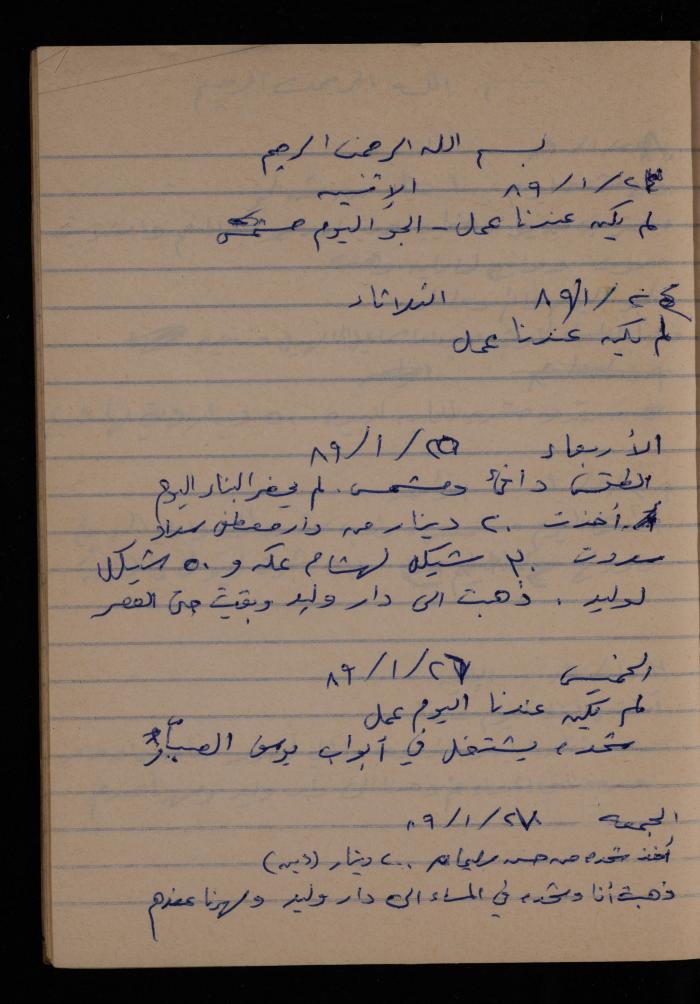 بسم الله الرحمن الرحيم
٨٩/١/٢٣ الاثنين
لم يكن عندنا عمل - الجو اليوم مشمس
٨٩/١/٢٤ الثلاثاء
لم يكن عندنا عمل
الأربعاء ٨٩/١/٢٥
الطقس دافئ ومشمس. لم يحضر البناء اليوم
أخذت ٢٠ دينار من دار مصطفى سداد
سددت ٣٠ شيكل لهشام عكه و ٥٠ شيكل
لوليد . ذهبت الى دار وليد وبقيت حتى العصر
الخميس ٨٩/١/٢٦
لم يكن عندنا اليوم عمل
شحده يشتغل في أبواب يوسف
الجمعه ٨٩/١/٢٧
أخذ شحده من حسن سليمان ٢٠٠ دينار (دين)
ذهبت أنا وشحده في المساء الى دار وليد وسهرنا عندهم